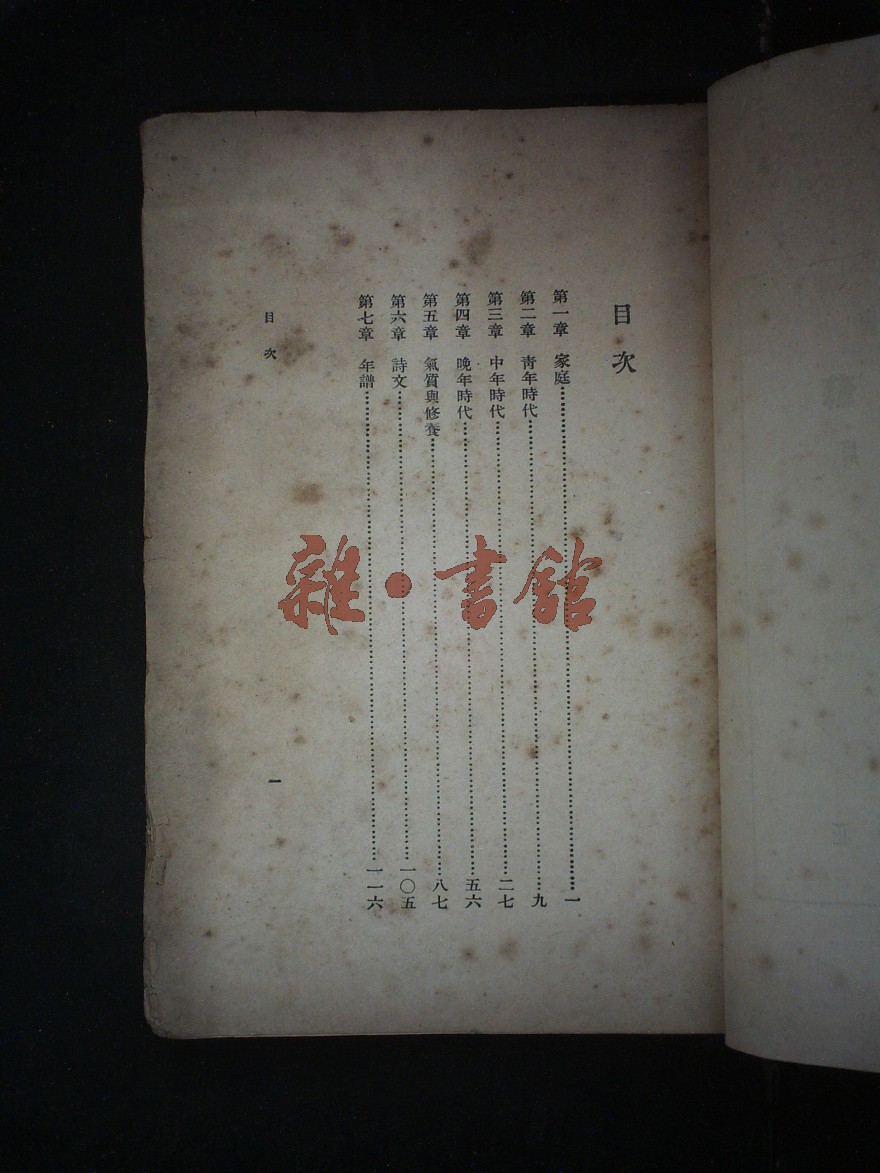 目次
第一章 家庭……一
第二章 青年時代……九
第三章 中年時代……二七
第四章 晚年時代……五六
第五章 氣質與修養……八七
第六章 詩文……一〇五
第七章 年譜……一一六
目次
一
雜·書館